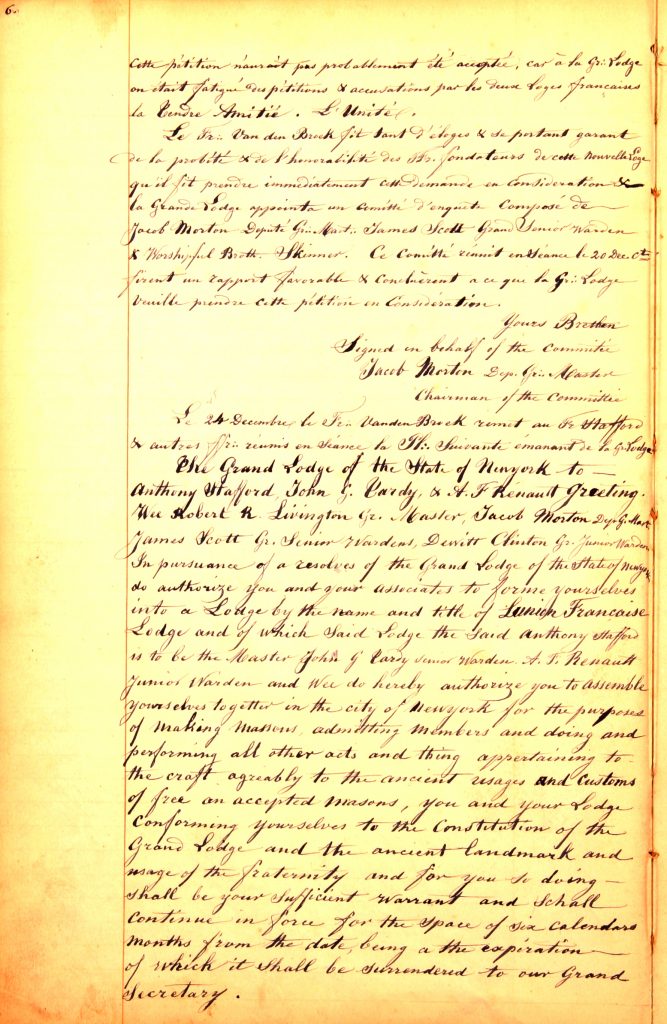 6.
cette pétition n'aurait pas probablement été acceptée, car à la Gr∴ Lodge
on était fatigué des pétitions & accusations par les deux Loges françaises
la Tendre Amitié. L'Unité.
Le Fr∴ Van den Broek fit tant d'éloges & se portant garant
de la probité & de l'honorabilité des ffr. fondateurs de cette Nouvelle Loge
qu'il fit prendre immédiatement cette demande en Consideration &
la Grande Lodge appointa un Comitté d'enquete Composé de
Jacob Morton Deputé Gr∴ Mast∴ James Scott Grand Senior Warden
& Worshipful Broth. Skinner. Ce Comitté réunit en Séance le 20 Dec. Ct
firent un rapport favorable & Conclurent a ce que la Gr∴ Lodge
veuille prendre cette pétition en Consideration.
Yours Brethen
Signed en behalf of the Committie
Jacob Morton Dep. Gr∴ Master
Chairman of the Committie
Le 24 Decembre, le Fr∴ Vanden Broek remet au Fr Stafford
& autres ffr∴ réunis en Séance la Suivante émanant de la Gr Lodge
The Grand Lodge of the State of Newyork to
Anthony Stafford, John G. Tardy, & A. F Renault Greeting.
Wee Robert R. Livington Gr. Master, Jacob Morton Dep. G. Mast
James Scott Gr. Senior Wardens, Dewitt Clinton Gr. Junior Warden
In pursuance of a resolves of the Grand Lodge of the State of Newyork
do authorize you and your associates to forme yourselves
into a Lodge by the name and title of Lunion Francaise
Lodge and of which Said Lodge the Said Anthony Stafford
is to be the Master John G Tardy Senior Warden. A. F. Renault
Junior Warden and Wee do hereby authorize you to assemble
yourselves together in the city of Newyork for the purposes
of making Massons, admitting members and doing and
performing all other acts and thing appertaining to
the craft agreably to the ancient usages and Customs
of free an accepted Masons, you and your Lodge
Conforming yourselves to the Constitution of the
Grand Lodge and the ancient landmark and
usage of the fraternity and for you so doing—
Shall be your Sufficient Warrant and Schall
Continue in force for the Space of Six Calendars
Months from the date, being a the expiration
of which it Shall be Surrendered to our Grand
Secretary.